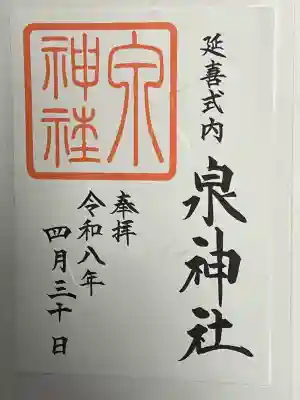 延喜式内
泉神社
奉拝
令和八年
四月三十日
泉
神社